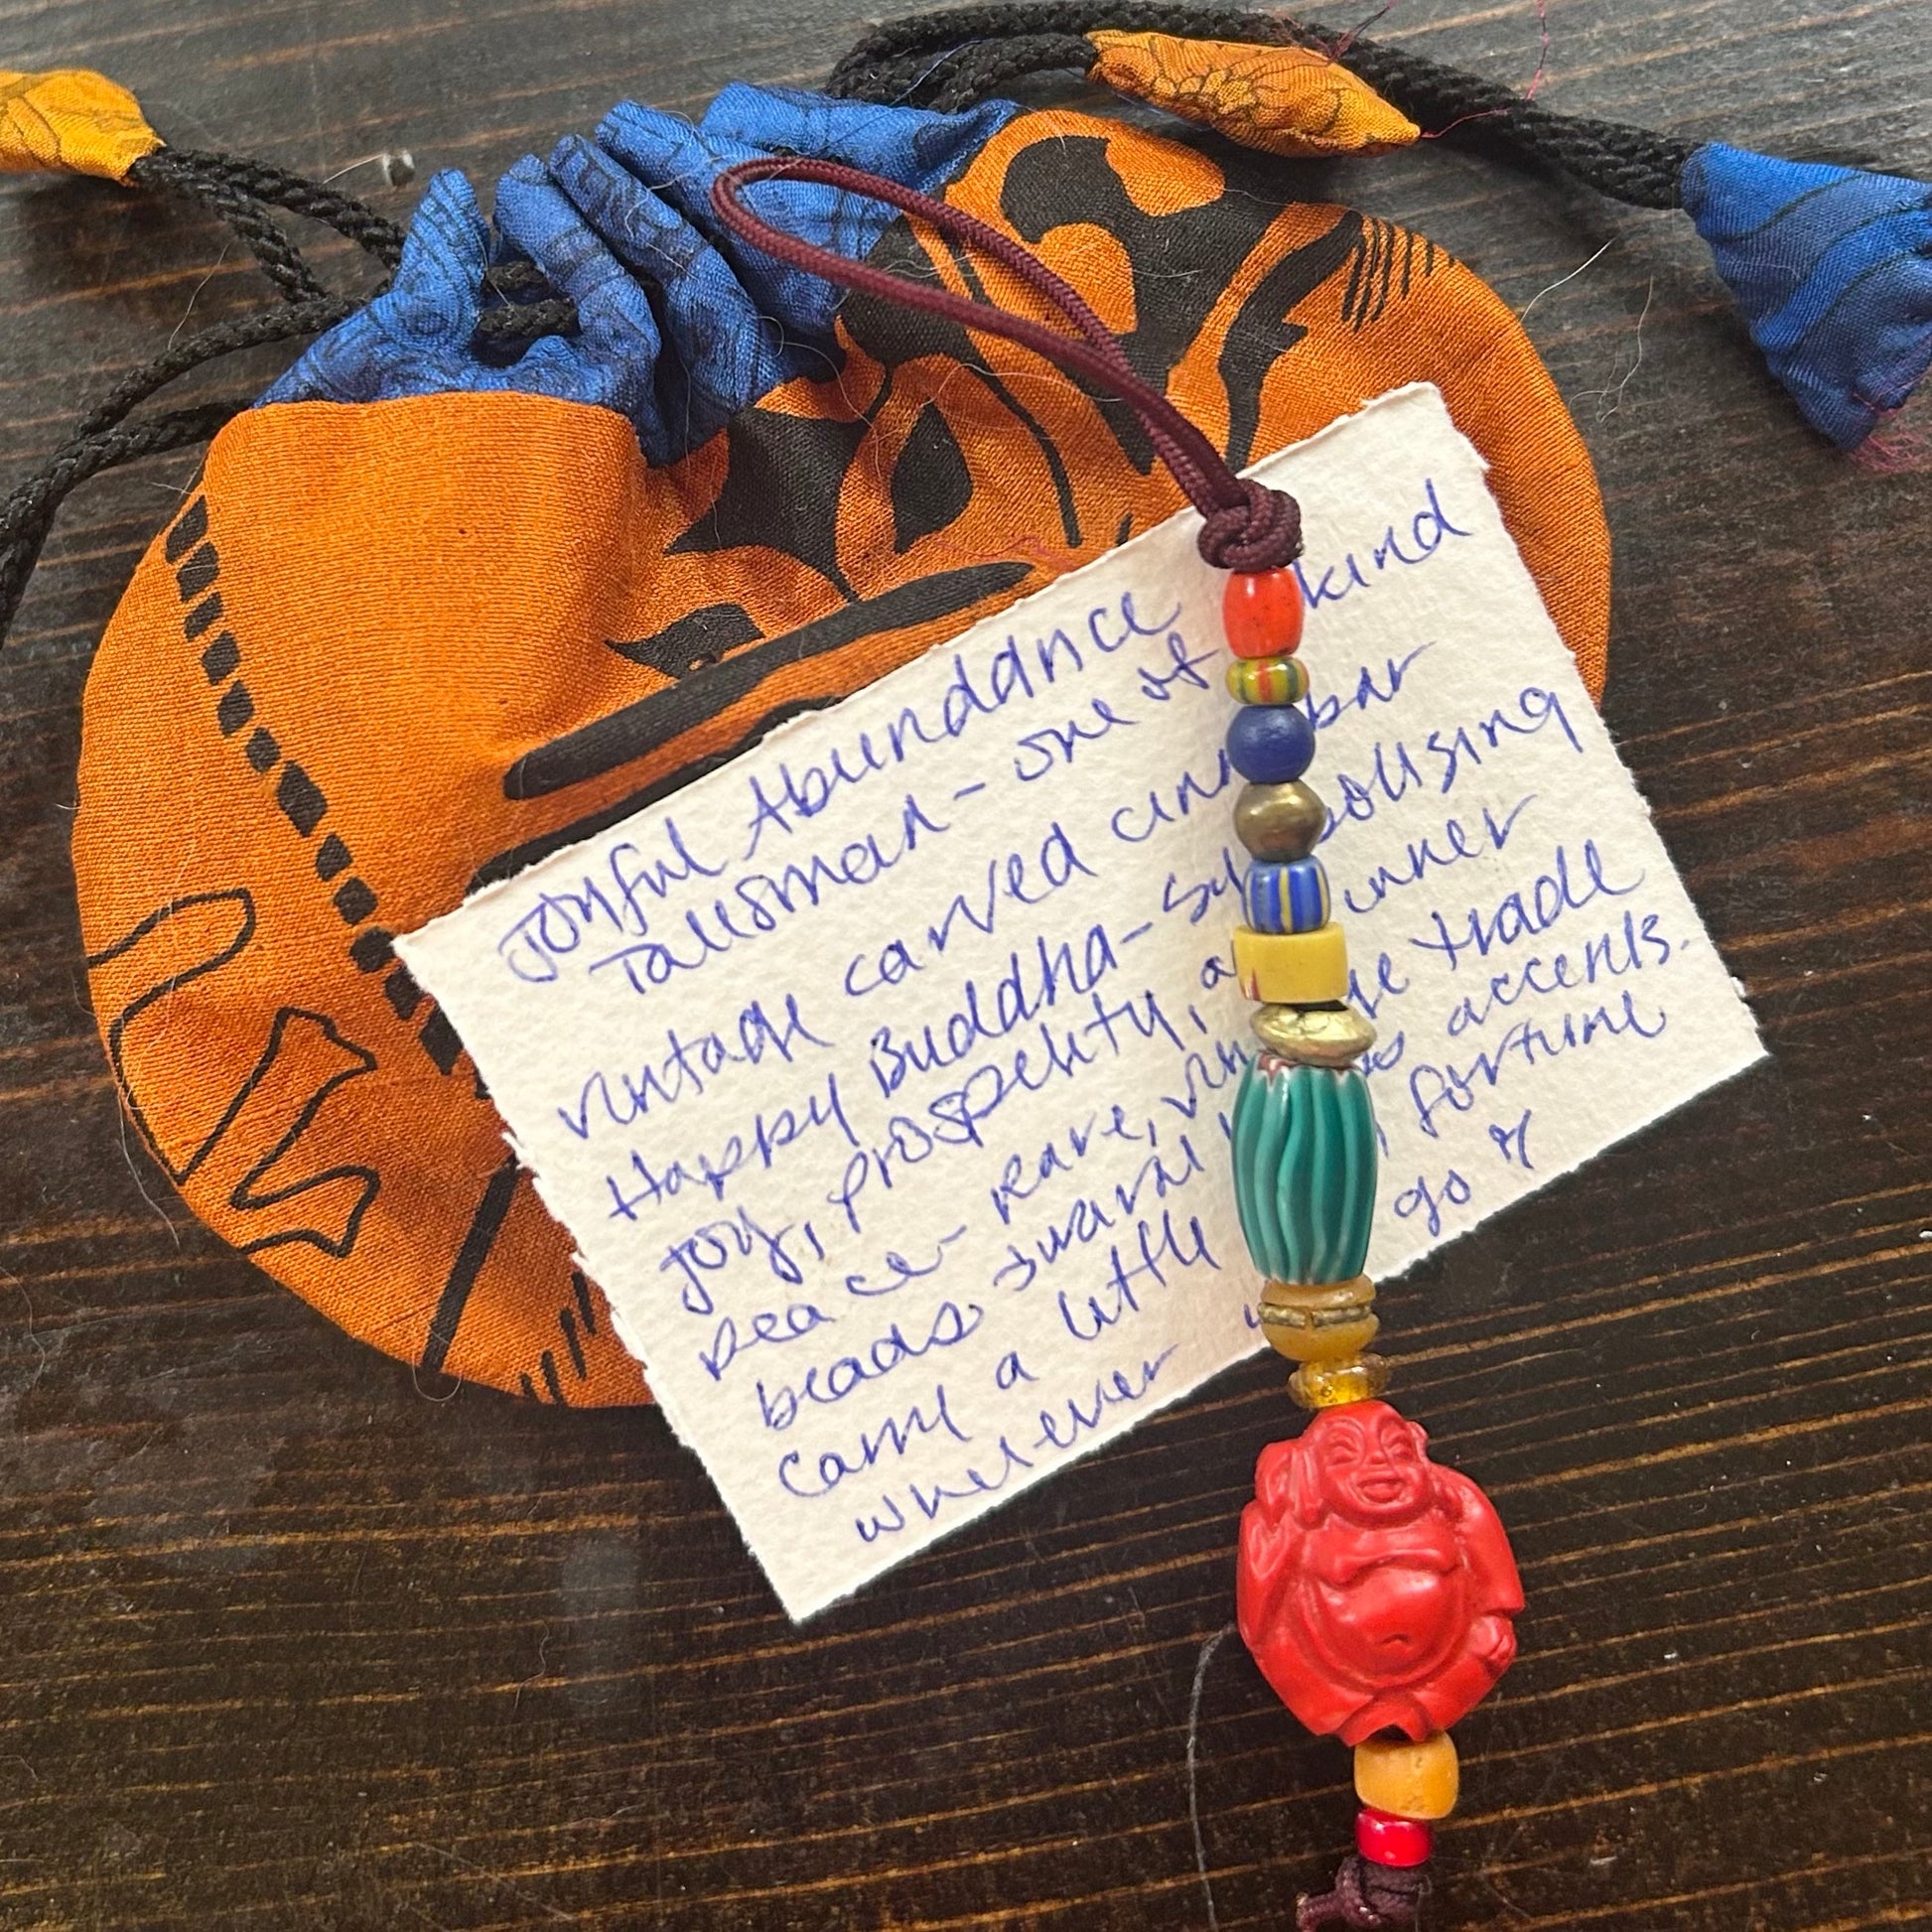 Joyful Abundance
Talisman - one of kind
vintage carved cinnabar
Happy Buddha - symbolising
joy, prosperity, inner
peace - reare, vintage trade
beads swaral accents.
carry a little fortune
wherever go